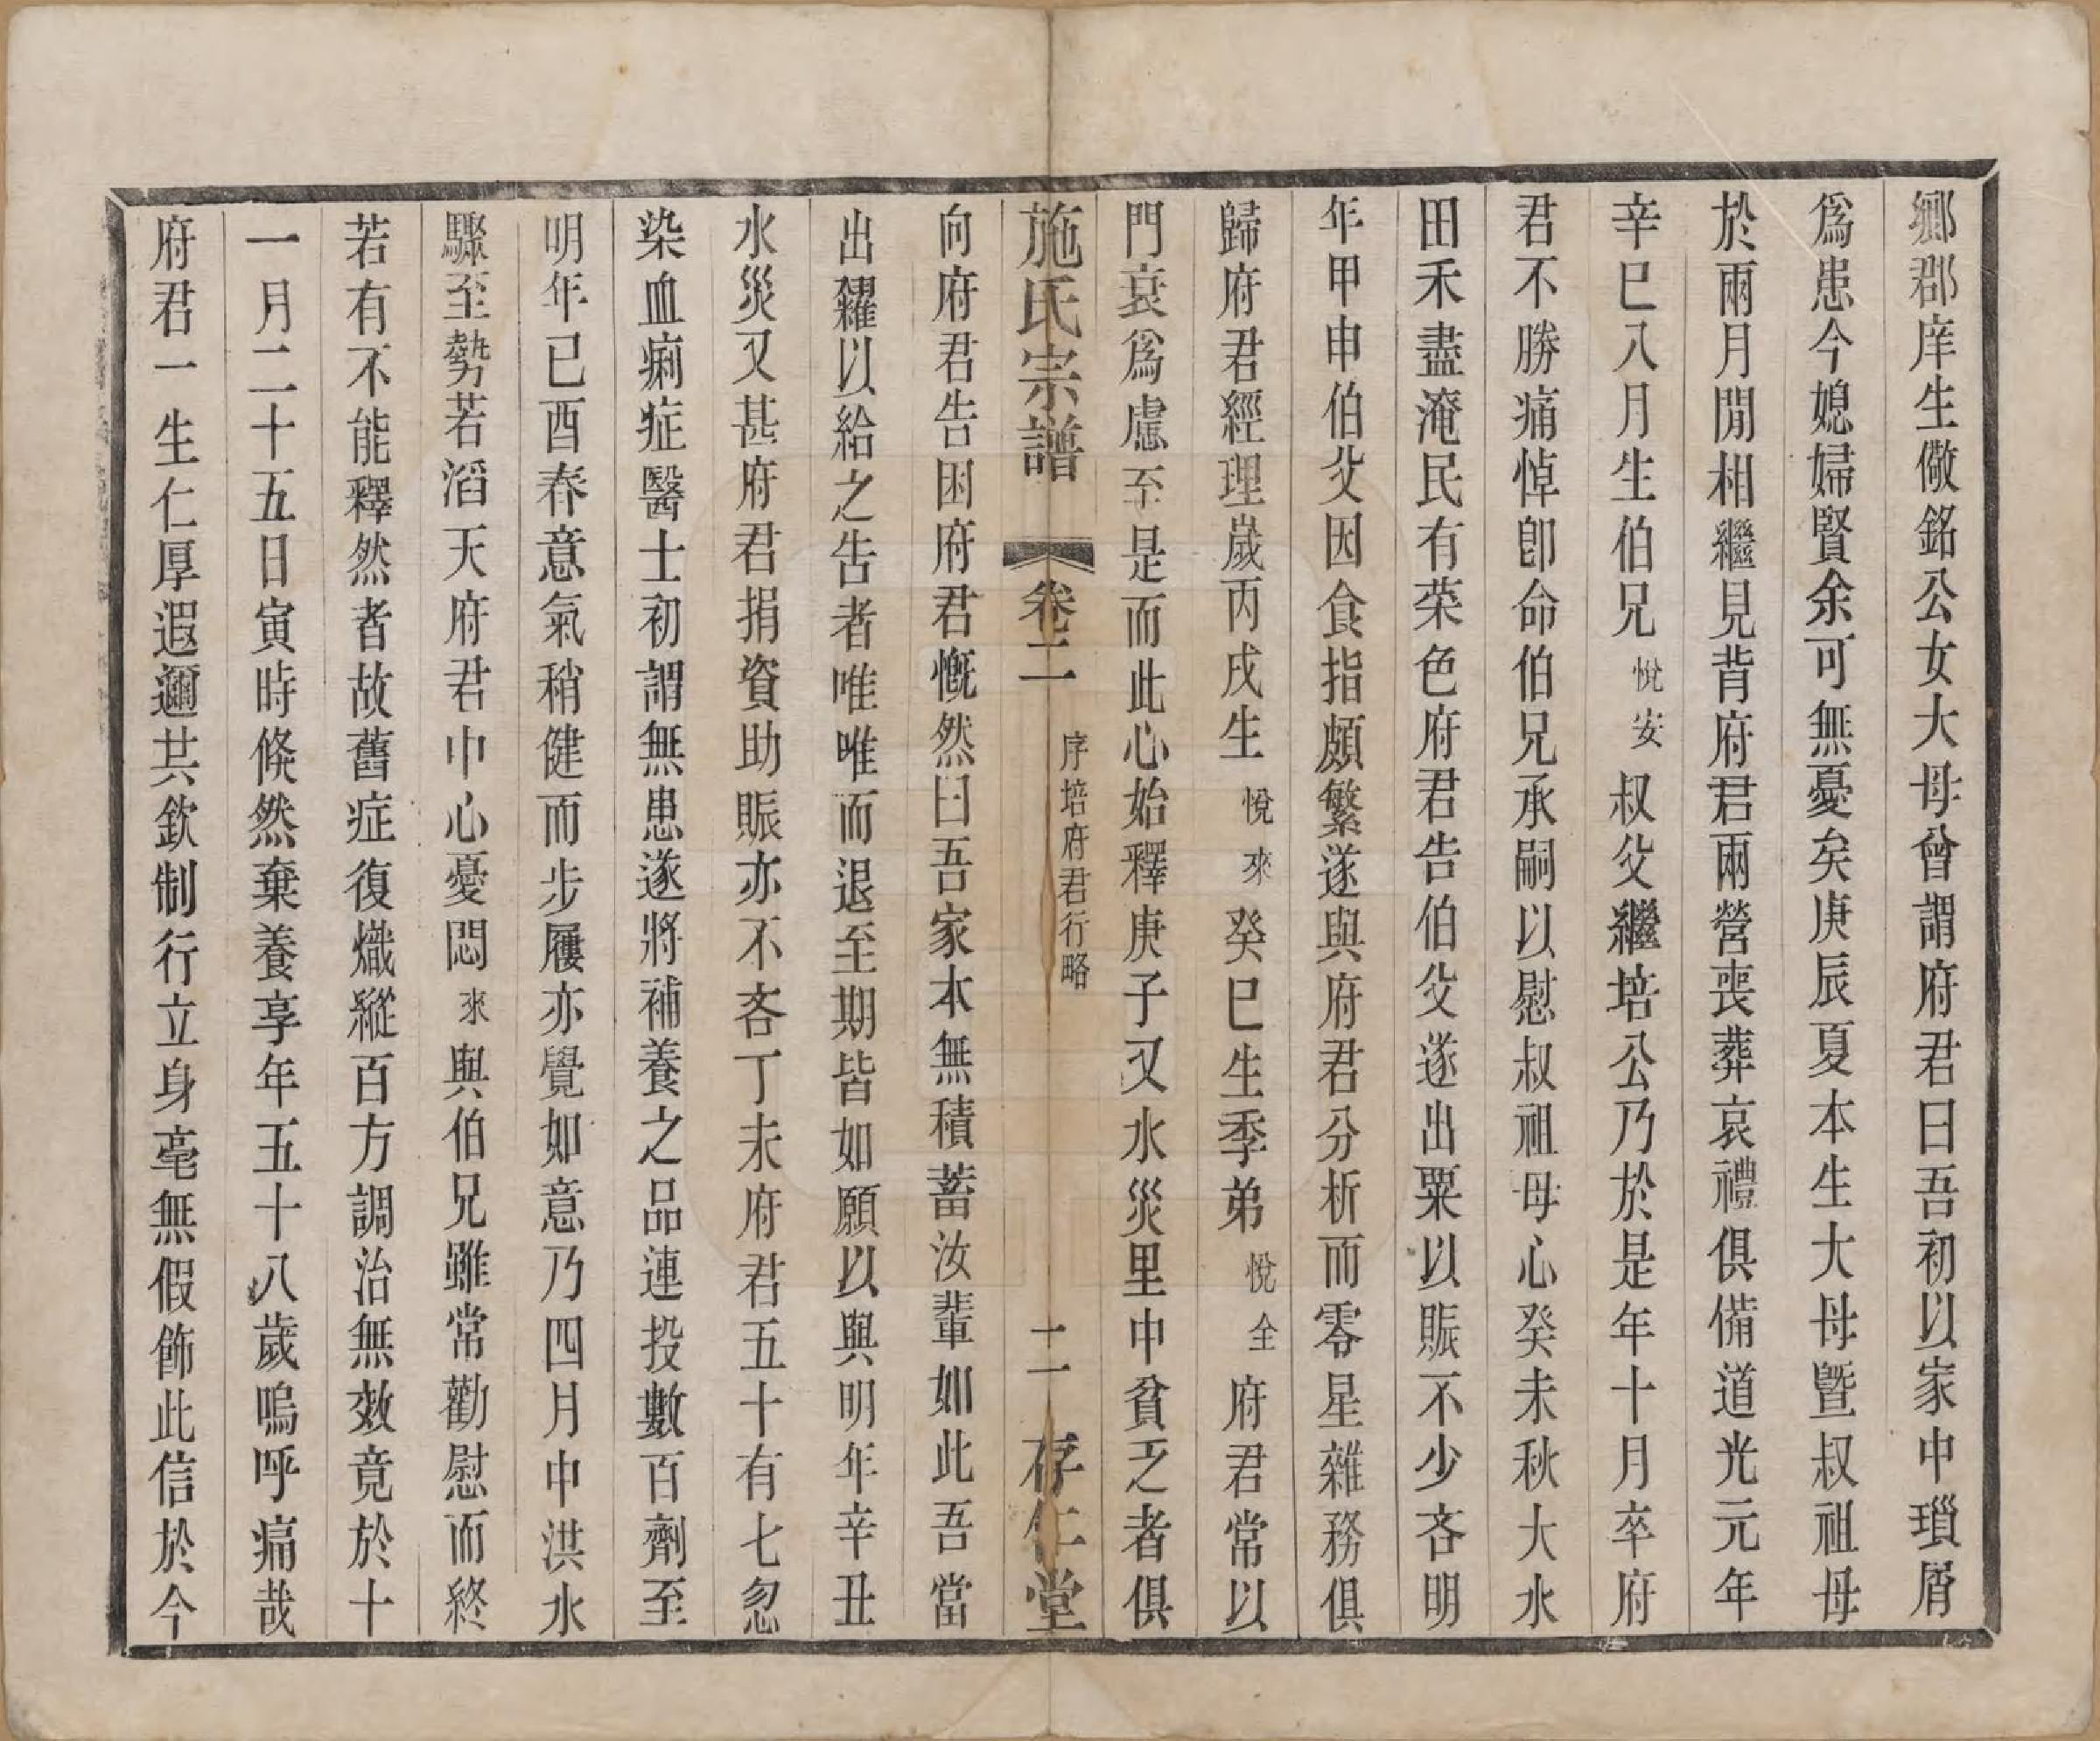 鄉郡庠生儆銘公女大母曾謂府君曰吾初以家中瑣屑
爲患今媳婦賢余可無憂矣庚辰夏本生大母暨叔祖母
於兩月閒相繼見背府君兩營喪葬哀禮俱備道光元年
辛巳八月生伯兄悅安叔父繼培公乃於是年十月卒府
君不勝痛悼卽命伯兄承嗣以慰叔祖母心癸未秋大水
田禾盡淹民有菜色府君告伯父遂出粟以賑不少吝明
年甲申伯父因食指頗繁遂與府君分析而零星雜務俱
歸府君經理歲丙戌生悅來癸巳生季弟悅全府君常以
門衰爲慮至是而此心始釋庚子又水災里中貧乏者俱
施氏宗譜 卷二 序培府君行略 二 存仁堂
向府君告困府君慨然曰吾家本無積蓄汝輩如此吾當
出糴以給之告者唯唯而退至期皆如願以與明年辛丑
水災又甚府君捐資助賑亦不吝丁未府君五十有七忽
染血痢症醫士初謂無患遂將補養之品連投數百劑至
明年已酉春意氣稍健而步履亦覺如意乃四月中洪水
驟至勢若滔天府君中心憂悶來與伯兄雖常勸慰而終
若有不能釋然者故舊症復熾縱百方調治無效竟於十
一月二十五日寅時倏然棄養享年五十八歲嗚呼痛哉
府君一生仁厚遐邇共欽制行立身毫無假飾此信於今